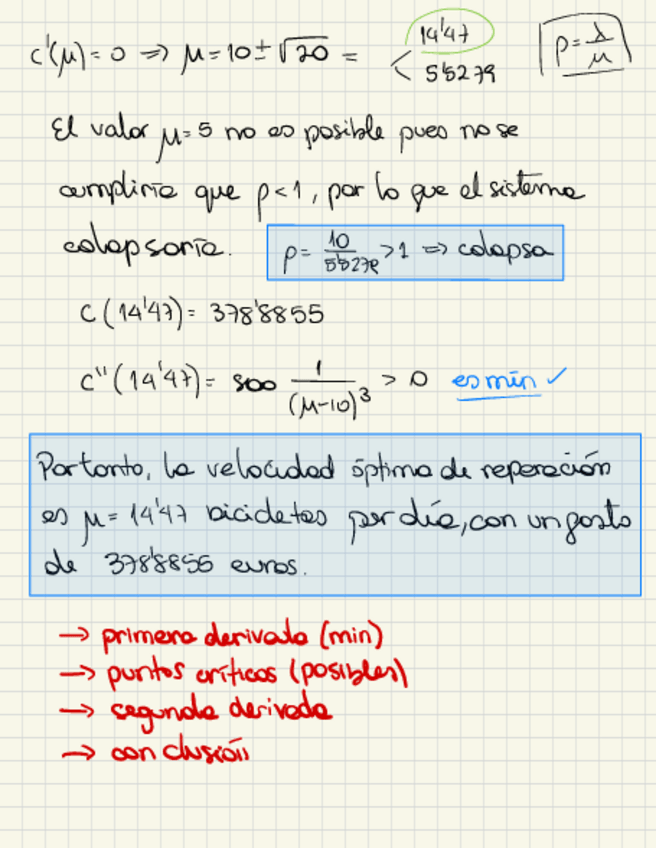 c'(μ) = 0 => μ = 10 ± √20 = < 14'47
5'5279
ρ = λ/μ
El valor μ = 5 no es posible pues no se
cumpliría que ρ < 1, por lo que el sistema
colapsaría. ρ = 10/5'5279 > 1 => colapsa
C(14'47) = 378'8855
C''(14'47) = 800 1/(μ-10)³ > 0 es mín ✓
Por tanto, la velocidad óptima de reperación
es μ = 14'47 bicicletas por día, con un gasto
de 378'8855 euros.
→ primera derivada (min)
→ puntos críticos (posibles)
→ segunda derivada
→ conclusión